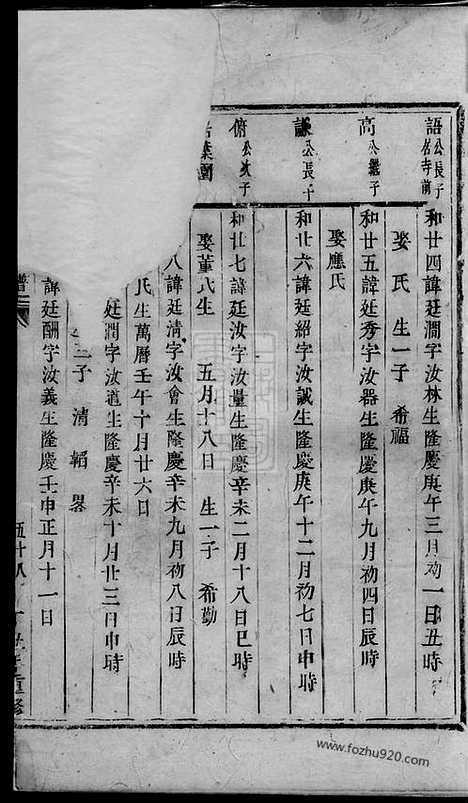 語公長子住寺前
和廿四諱廷澗字汝林生隆慶庚午三月初一日丑時
娶 氏 生一子 希福
高公繼子
和廿五諱廷秀字汝器生隆慶庚午九月初四日辰時
娶應氏
謙公長子
和廿六諱廷紹字汝誠生隆慶庚午十二月初七日申時
俯公次子
和廿七諱廷汝字汝量生隆慶辛未二月十八日巳時
娶董氏生 五月十八日 生一子 希勤
八諱廷清字汝會生隆慶辛未九月初八日辰時
氏生萬曆壬午十月廿六日
廷澗字汝道生隆慶辛未十月廿三日申時
二子 清韜 器
諱廷酬字汝義生隆慶壬申正月十一日
譜 五十八
www.fozhu920.com